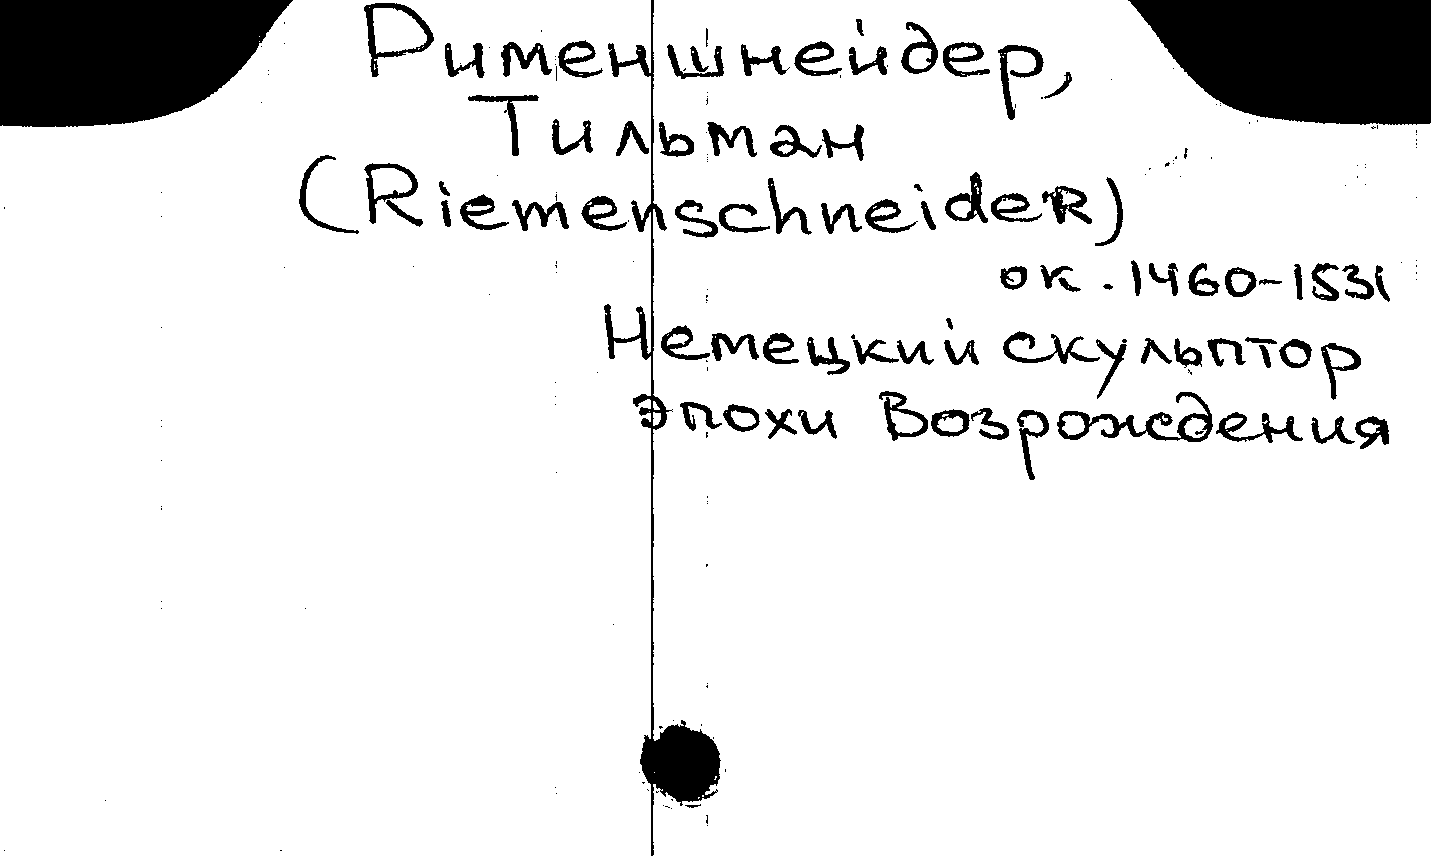 Рименшнейдер,
Тильман
(Riemenschneider)
ок. 1460-1531
Немецкий скульптор
эпохи Возрождения